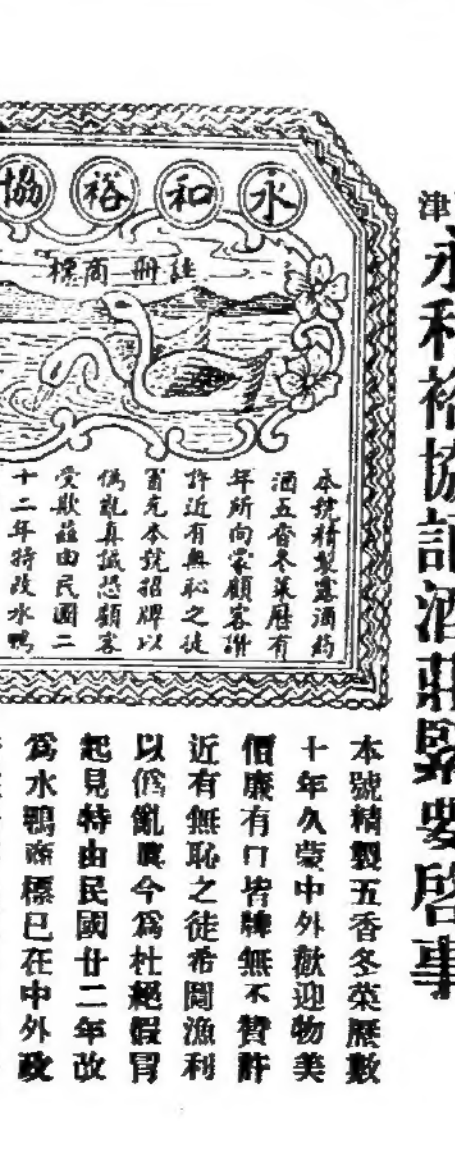 津
永利裕協記酒莊緊要啓事
永和裕協
註冊商標
本號精製露酒藥
酒五香冬菜歷有
年所向蒙顧客讚
許近有無恥之徒
冒充本號招牌以
偽亂真誠恐顧客
受欺茲由民國二
十二年特改水鴨
本號精製五香冬菜歷數
十年久蒙中外歡迎物美
價廉有口皆碑無不贊許
近有無恥之徒希圖漁利
以僞亂眞今爲杜絕假冒
起見特由民國廿二年改
爲水鴨商標已在中外政